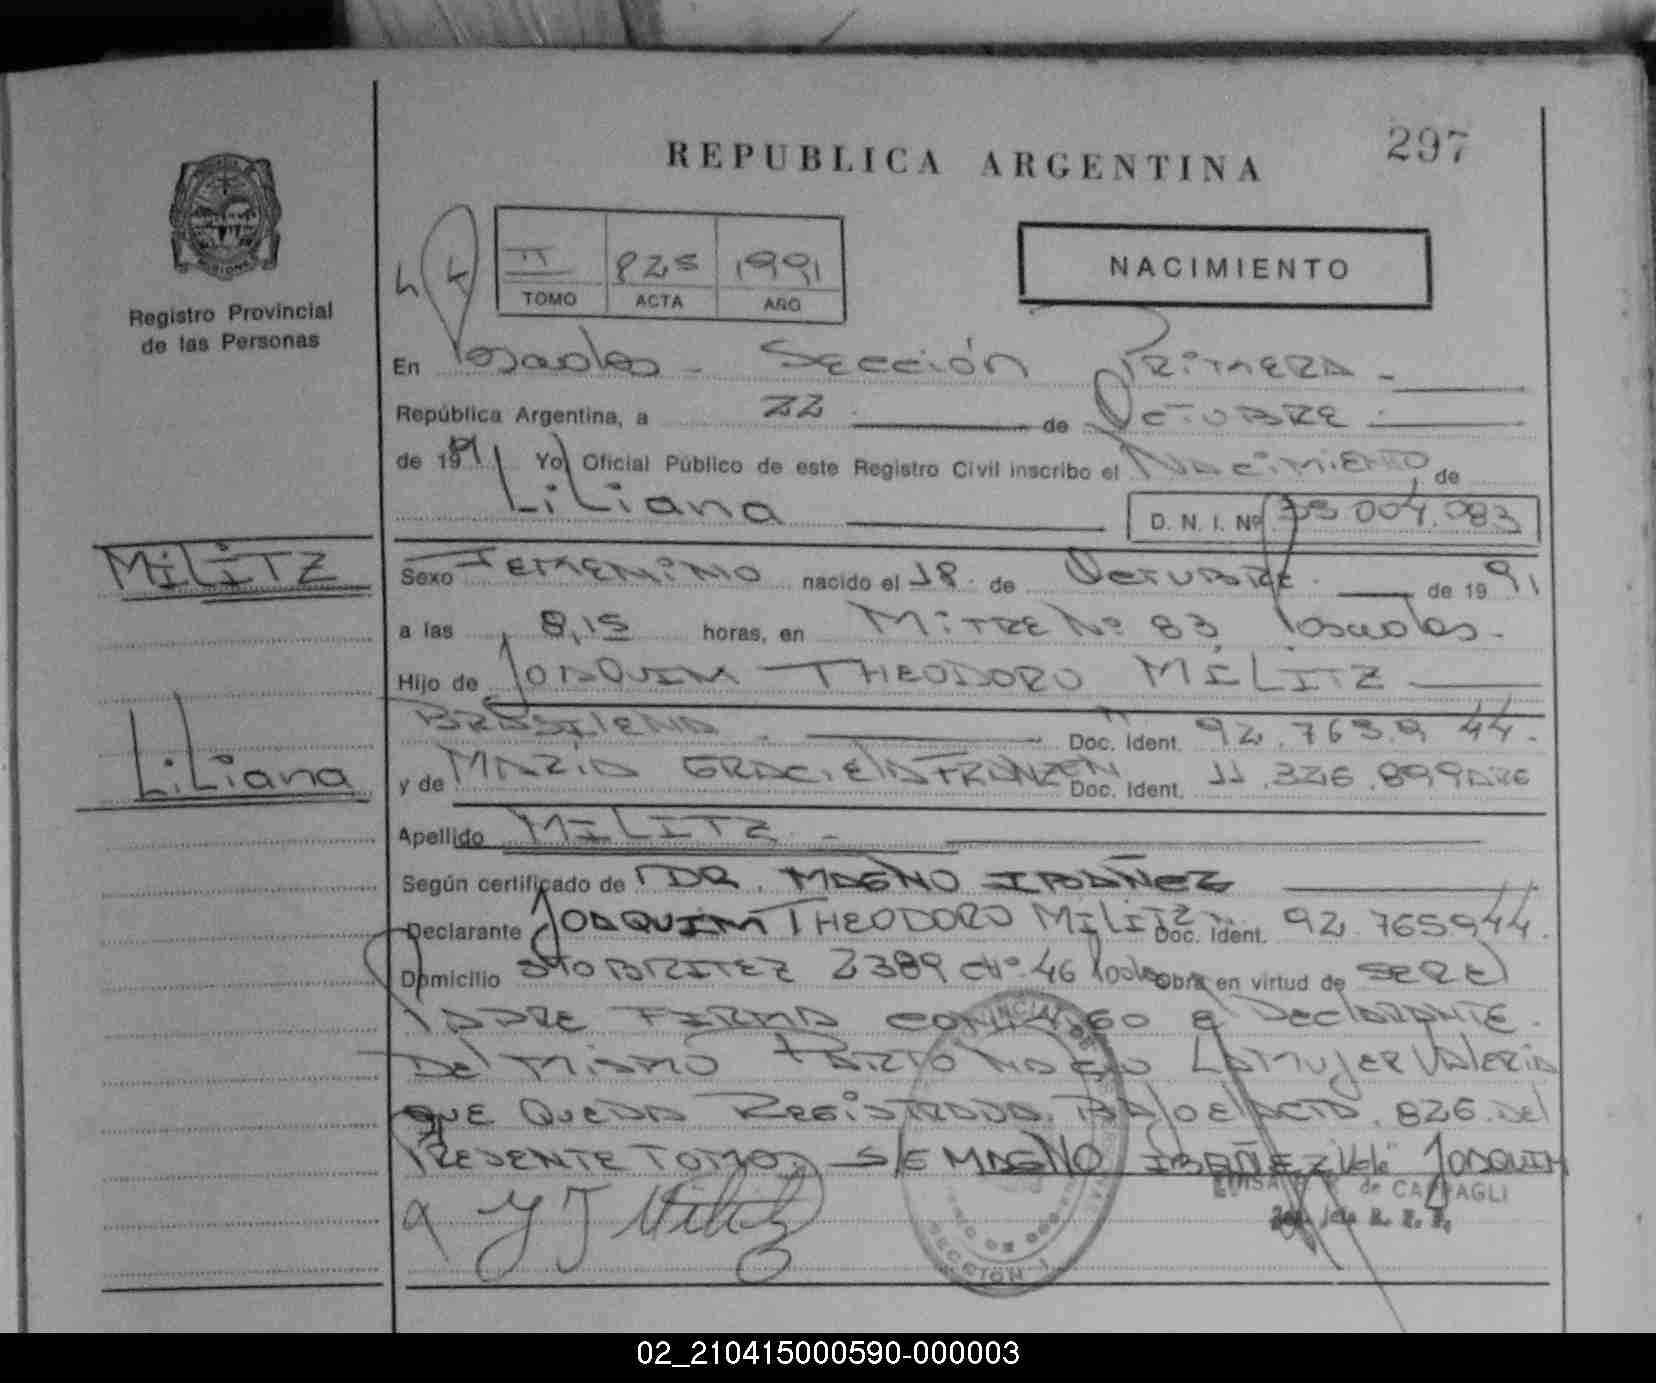 REPUBLICA ARGENTINA
297
II 825 1991
TOMO ACTA AÑO
NACIMIENTO
Registro Provincial
de las Personas
En Posadas - Sección Primera -
República Argentina, a 22 de Octubre
de 1991 Yo Oficial Público de este Registro Civil inscribo el Nacimiento de
Liliana
D. N. I. Nº 004.083
MiLiTZ
Sexo Femenino nacido el 18 de Octubre de 1991
a las 8,15 horas, en Mitre Nº 83 Posadas.
Hijo de Joaquim THEODORO MiLiTZ
Brasilena Doc. Ident. 92.765.9 44.
Liliana
y de Maria Graciela Franzen Doc. Ident. 11.326.899 ARG
Apellido MiLiTZ -
Según certificado de DR. MAGNO IBAÑEZ
Declarante JOAQUIM THEODORO MiLiTZ Doc. Ident. 92 765944.
Domicilio Sto BRITEZ 2389 Nº 46 Podas Obra en virtud de SER El
PADRE FIRMA CONMIGO El DeclARANTE.
Del mismo PARTO NACIO LA MUJER VALERIA
QUE QUEDA REGISTRADA BAJO El ACTA. 826. Del
PRESENTE TOMO. S/E MAGNO IBAÑEZ Vale JOAQUIM
LUISA de CARPAGLI
SECCIÓN 1
02_210415000590-000003